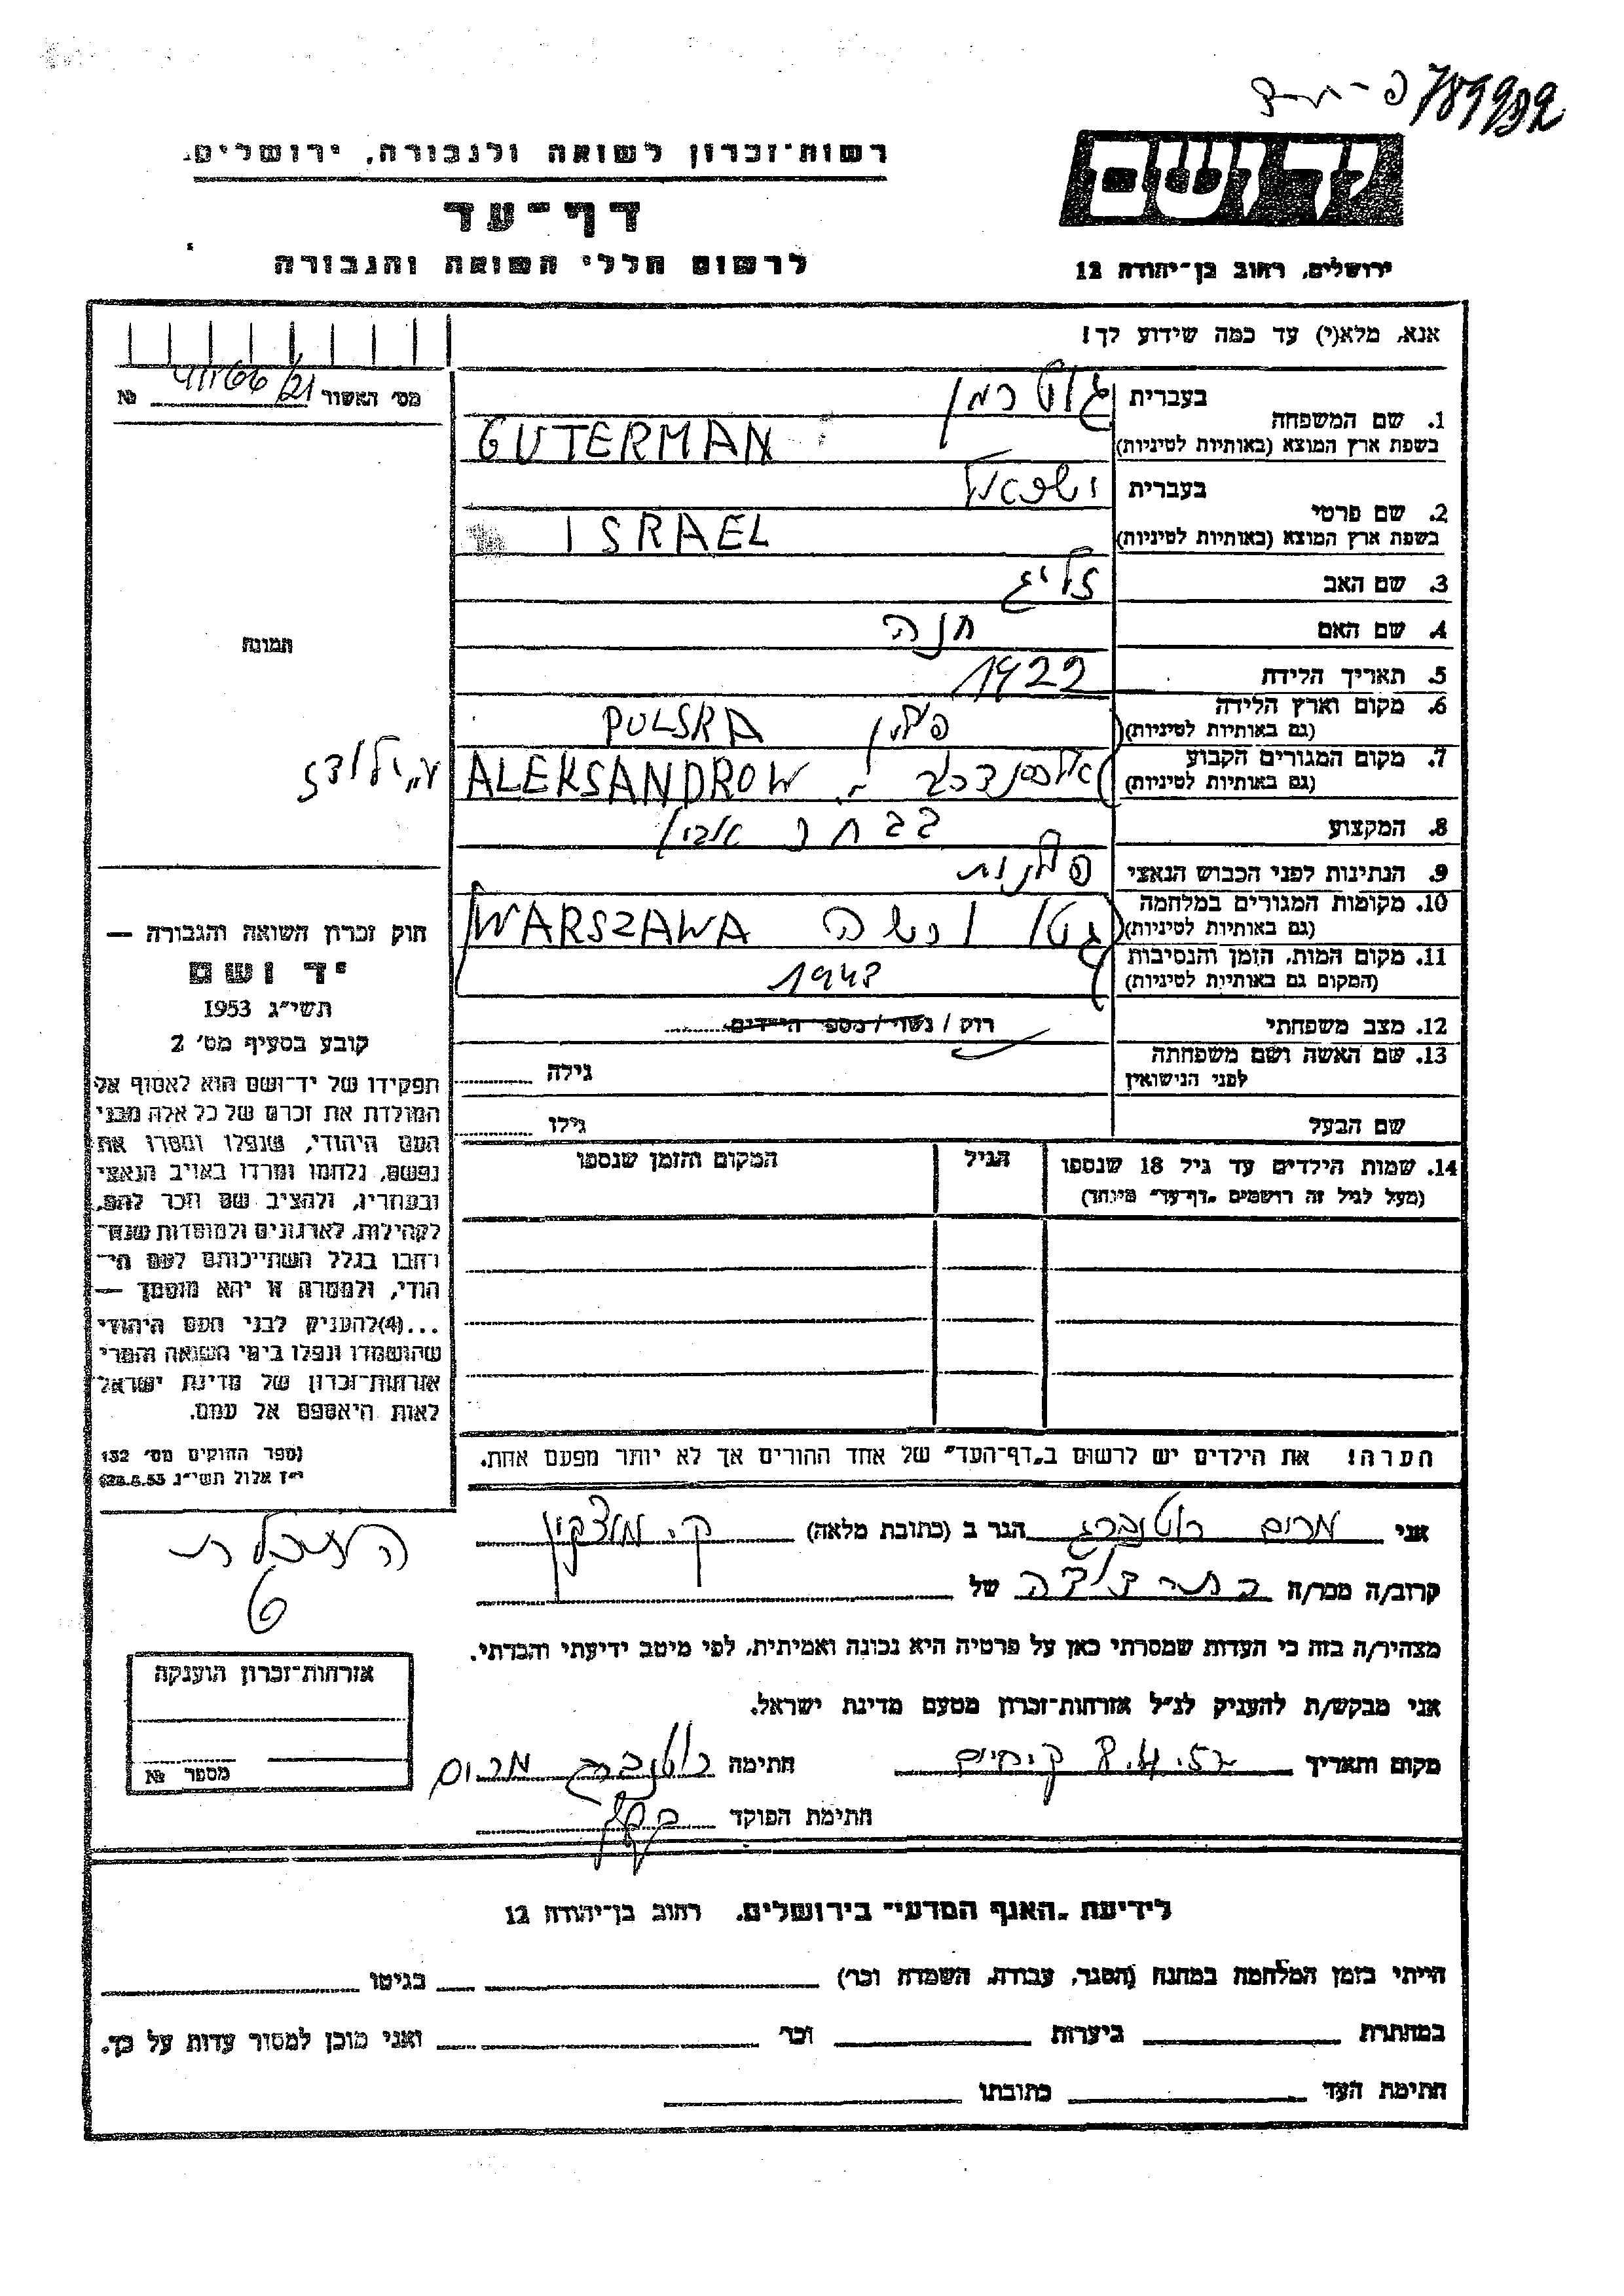 789932
רשות־זכרון לשואה ולגבורה, ירושלים.
דף־עד
לרשום חללי השואה והגבורה
יד ושם
ירושלים, רחוב בן־יהודה 12
אנא, מלא(י) עד כמה שידוע לך!
מס׳ האשור №
1. שם המשפחה
בעברית גוטרמן
בשפת ארץ המוצא (באותיות לטיניות) GUTERMAN
2. שם פרטי
בעברית ישראל
בשפת ארץ המוצא (באותיות לטיניות) ISRAEL
3. שם האב זליג
4. שם האם חנה
תמונה
5. תאריך הלידה 1922
6. מקום וארץ הלידה פולין POLSKA
(גם באותיות לטיניות)
7. מקום המגורים הקבוע אלכסנדרוב ALEKSANDROW ע"י לודז
(גם באותיות לטיניות)
8. המקצוע
9. הנתינות לפני הכבוש הנאצי פולנית
10. מקומות המגורים במלחמה גטו ורשה WARSZAWA
(גם באותיות לטיניות)
11. מקום המות, הזמן והנסיבות 1943
(המקום גם באותיות לטיניות)
12. מצב משפחתי רווק / נשוי / מספר הילדים
13. שם האשה ושם משפחתה
לפני הנישואין
גילה
שם הבעל גילו
14. שמות הילדים עד גיל 18 שנספו הגיל המקום והזמן שנספו
(מעל לגיל זה רושמים „דף־עד" מיוחד)
חוק זכרון השואה והגבורה —
יד ושם
תשי״ג 1953
קובע בסעיף מס׳ 2
תפקידו של יד־ושם הוא לאסוף אל
המולדת את זכרם של כל אלה מבני
העם היהודי, שנפלו ומסרו את
נפשם, נלחמו ומרדו באויב הנאצי
ובעוזריו, ולהציב שם וזכר להם,
לקהילות, לארגונים ולמוסדות שנח־
רבו בגלל השתייכותם לעם הי־
הודי, ולמטרה זו יהא מוסמך —
...(4) להעניק לבני העם היהודי
שהושמדו ונפלו בימי השואה והמרי
אזרחות־זכרון של מדינת ישראל
לאות היאספם אל עמם.
(ספר החוקים מס׳ 132
י״ז אלול תשי״ג 28.8.53)
הערה! את הילדים יש לרשום ב„דף־העד" של אחד ההורים אך לא יותר מפעם אחת.
אני מרים רוטנברג הגר ב (כתובת מלאה) ק. מוצקין
קרוב/ה מכר/ה בת דודה של
מצהיר/ה בזה כי העדות שמסרתי כאן על פרטיה היא נכונה ואמיתית, לפי מיטב ידיעתי והכרתי.
אני מבקש/ת להעניק לנ״ל אזרחות־זכרון מטעם מדינת ישראל.
מקום ותאריך חתימה רוטנברג מרים
חתימת הפוקד
אזרחות־זכרון הוענקה
מספר №
לידיעת „האגף המדעי" בירושלים, רחוב בן־יהודה 12
הייתי בזמן המלחמה במחנה (הסגר, עבודה, השמדה וכו׳) בגיטו
במחתרת ביערות וכו׳ ואני מוכן למסור עדות על כך.
חתימת העד כתובתו